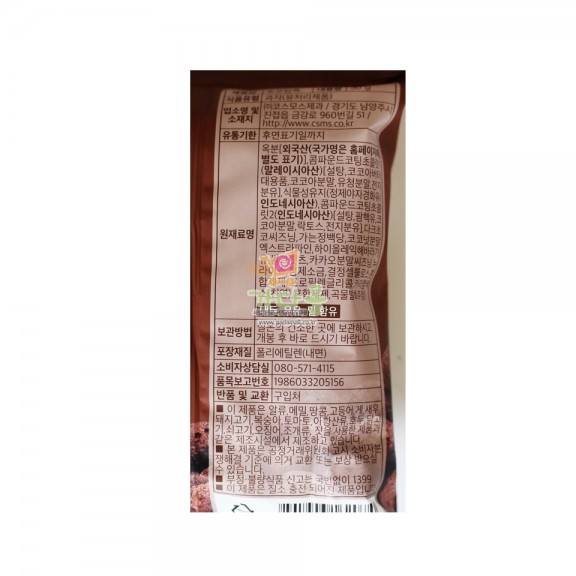 식품유형 과자(유처리제품)
업소명 및 소재지 ㈜코스모스제과 / 경기도 남양주시
진접읍 금강로 960번길 51 /
http://www.csms.co.kr
유통기한 후면표기일까지
원재료명 옥분[외국산(국가명은 홈페이지에
별도 표기)],콤파운드코팅초콜릿
(말레이시아산)[설탕,코코아버터
대용품,코코아분말,유청분말,전지
분유],식물성유지(정제야자경화유/
인도네시아산),콤파운드코팅초콜
릿2(인도네시아산)[설탕,팜핵유,코
코아분말,락토스,전지분유],다크초
코씨즈닝,가는정백당,코코넛분말
엑스트라파인,하이올레익해바라
카카오분말씨즈닝
정제소금,결정셀룰로스
프로필렌글리콜
곡물
밀 함유
보관방법 건조한 곳에 보관하시고,
개봉 후 바로 드시기 바랍니다.
포장재질 폴리에틸렌(내면)
소비자상담실 080-571-4115
품목보고번호 1986033205156
반품 및 교환 구입처
■ 이 제품은 알류,메밀,땅콩,고등어,게,새우,
돼지고기,복숭아,토마토,아황산류,호두,닭고
기,쇠고기,오징어,조개류,잣을 사용한 제품과
같은 제조시설에서 제조하고 있습니다.
■ 본 제품은 공정거래위원회 고시 소비자분
쟁해결 기준에 의거 교환 또는 보상 받으실
수 있습니다.
■ 부정·불량식품 신고는 국번없이 1399
■ 이 제품은 질소 충전 되어진 제품입니다